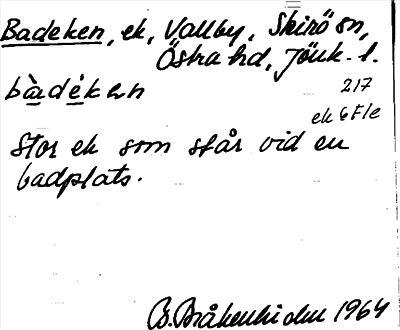 Badeken, ek, Vallby, Skirö sn,
Östra hd, Jönk. l.
bàdéken
217
ek 6F1e
Stor ek som står vid en
badplats.
B. Bråkenhielm 1964